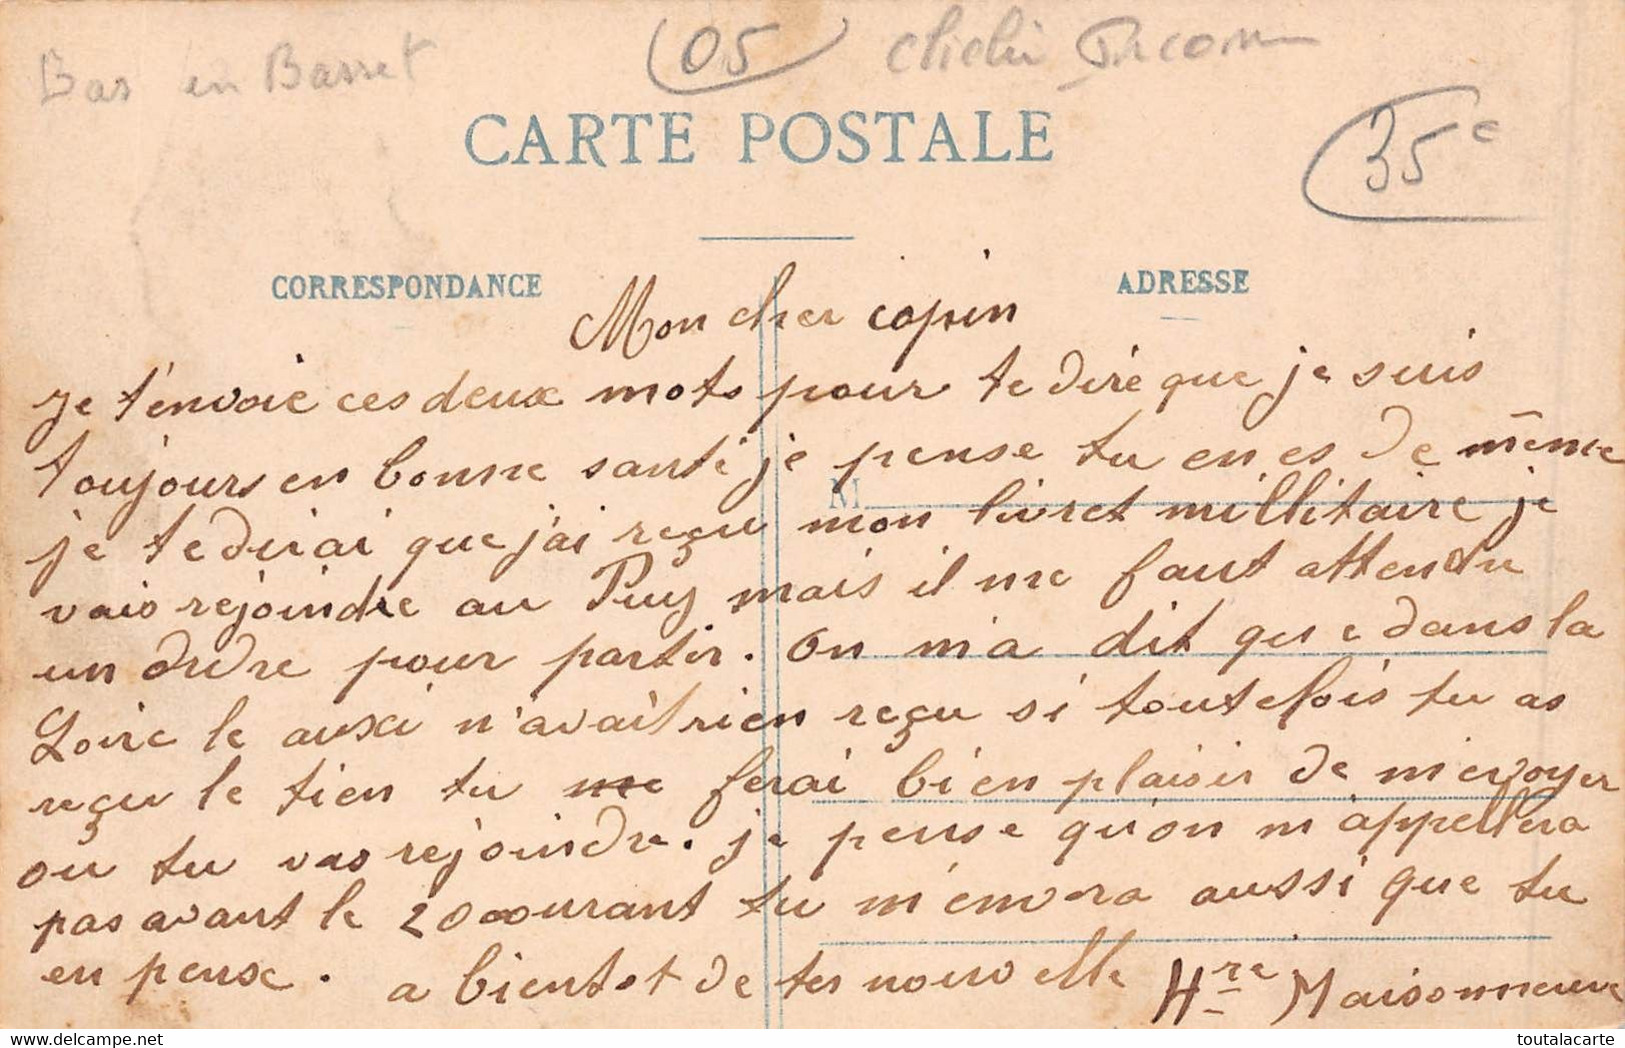 Bas en Basset
05
cliché
35c
CARTE POSTALE
CORRESPONDANCE
ADRESSE
Mon cher copin
je t'envoie ces deux mots pour te dire que je suis
toujours en bonne santé je pense tu en es de même
M
je te dirai que j'ai reçu mon livret millitaire je
vais rejoindre au Puy mais il me faut attendre
un ordre pour partir. On m'a dit que dans la
Loire le aussi n'avait rien reçu si toutefois tu as
reçu le tien tu me ferai bien plaisir de m'envoyer
ou tu vas rejoindre. je pense qu'on m'appellera
pas avant le 20 courant tu m'enverra aussi que tu
en pense. a bientot de tes nouvelle Hre Maisonneuve
toutalacarte